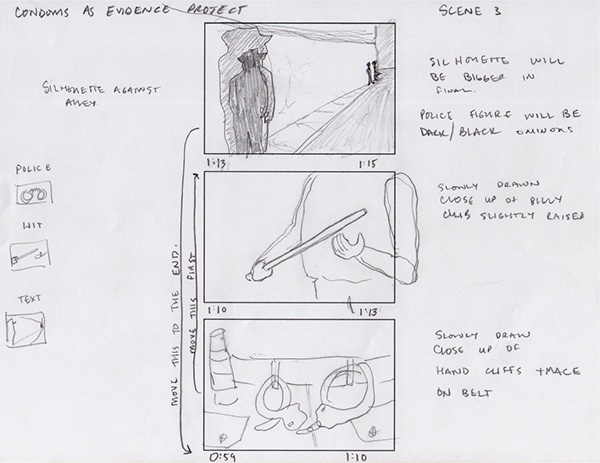 CONDOMS AS EVIDENCE PROJECT
SCENE 3
SILHOUETTE AGAINST
ALLEY.
SILHOUETTE WILL
BE BIGGER IN
FINAL.
POLICE FIGURE WILL BE
DARK/BLACK OMINOUS
1:13
1:15
POLICE
HIT
TEXT
MOVE THIS TO THE END.
MOVE THIS FIRST
SLOWLY DRAWN
CLOSE UP OF BILLY
CLUB SLIGHTLY RAISED
1:10
1:13
SLOWLY DRAWN
CLOSE UP OF
HAND CUFFS + MACE
ON BELT
0:59
1:10